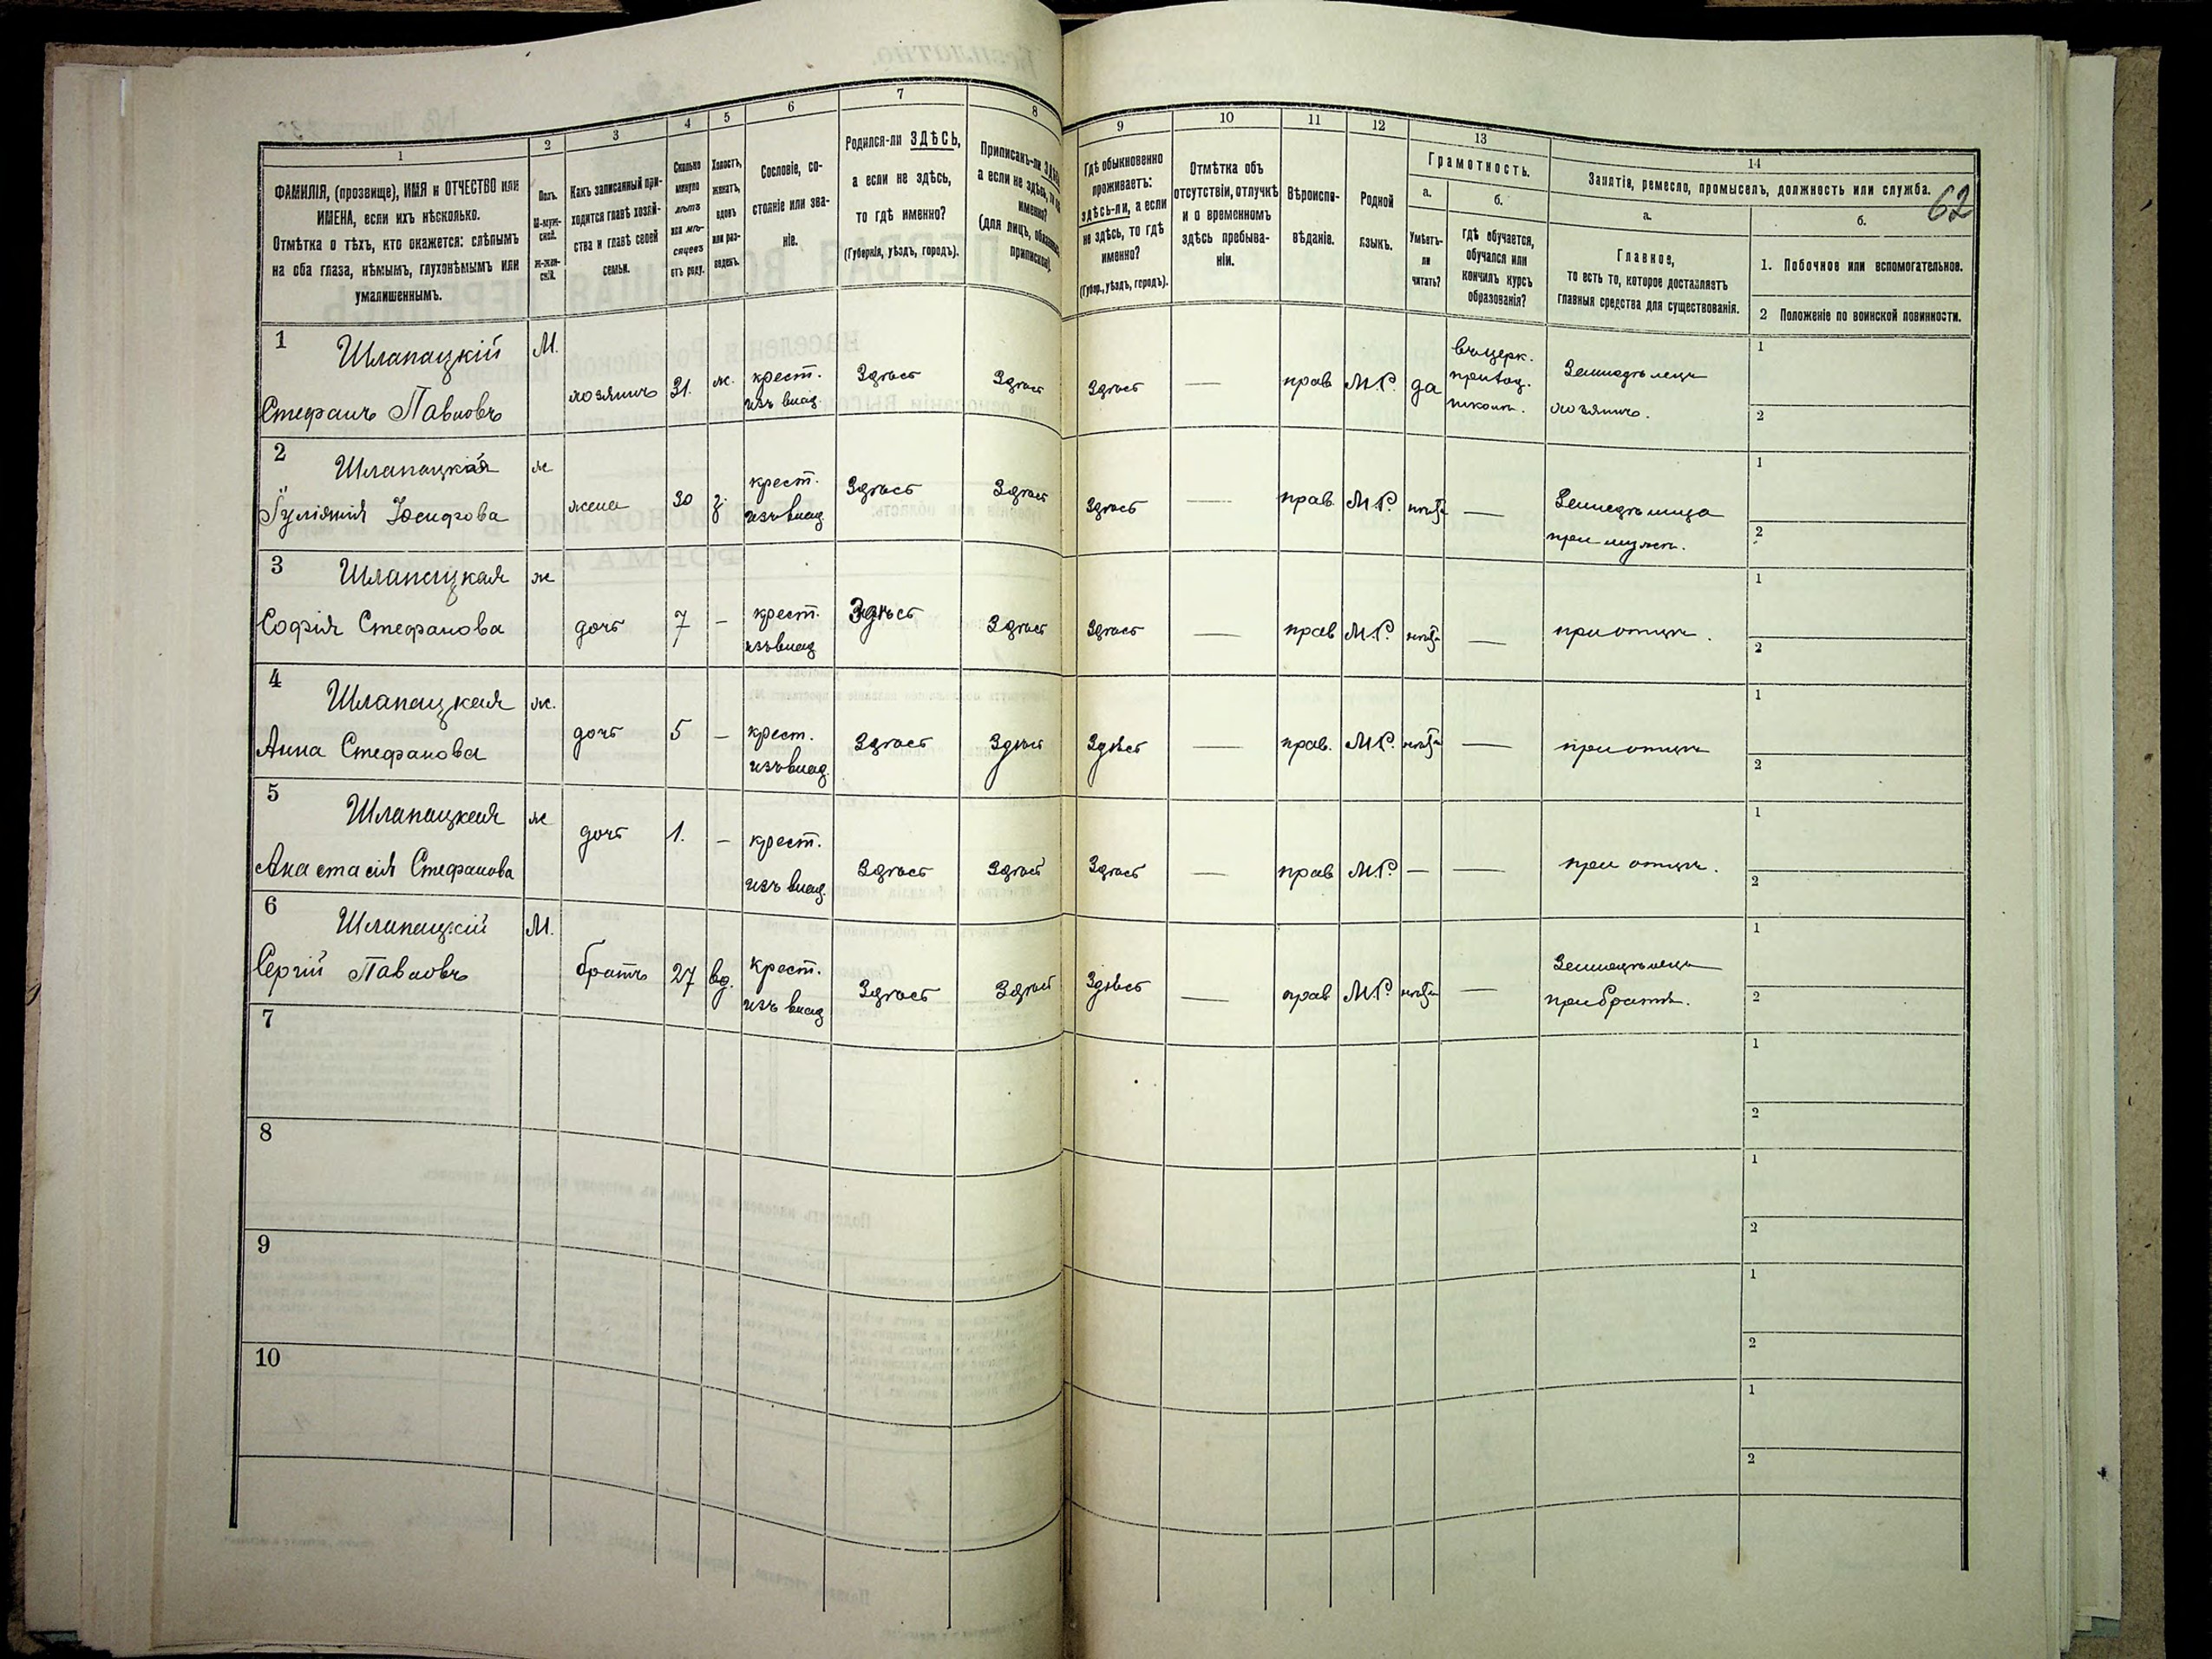 62
1
2
3
4
5
6
7
8
9
10
11
12
13
14
ФАМИЛІЯ, (прозвище), ИМЯ и ОТЧЕСТВО или
ИМЕНА, если ихъ нѣсколько.
Отмѣтка о тѣхъ, кто окажется: слѣпымъ
на оба глаза, нѣмымъ, глухонѣмымъ или
умалишеннымъ.
Полъ.
М-муж-
ской.
Ж-жен-
скій.
Какъ записанный при-
ходится главѣ хозяй-
ства и главѣ своей
семьи.
Сколько
минуло
лѣтъ
или мѣ-
сяцевъ
отъ роду.
Холостъ,
женатъ,
вдовъ
или раз-
веденъ.
Сословіе, со-
стояніе или зва-
ніе.
Родился-ли ЗДѢСЬ,
а если не здѣсь,
то гдѣ именно?
(Губернія, уѣздъ, городъ).
Приписанъ-ли
а если не здѣсь,
именно?
(для лицъ,
Гдѣ обыкновенно
проживаетъ:
здѣсь-ли, а если
не здѣсь, то гдѣ
именно?
(Губер., уѣздъ, городъ).
Отмѣтка объ
отсутствіи, отлучкѣ
и о временномъ
здѣсь пребыва-
ніи.
Вѣроиспо-
вѣданіе.
Родной
языкъ.
Грамотность.
а.
Умѣетъ-
ли
читать?
б.
гдѣ обучается,
обучался или
кончилъ курсъ
образованія?
Занятіе, ремесло, промыселъ, должность или служба.
а.
Главное,
то есть то, которое доставляетъ
главныя средства для существованія.
б.
1. Побочное или вспомогательное.
2 Положеніе по воинской повинности.
1
Шлапацкій
Стефанъ Павловъ
М.
хозяинъ
31.
ж.
крест.
изъ влад.
Здѣсь
Здѣсь
Здѣсь
—
прав
М.Р.
да
въ церк.
приход.
школѣ.
Земледѣлецъ
хозяинъ.
1
2
2
Шлапацкая
Іосифова
ж
жена
30
з.
крест.
изъ влад
Здѣсь
Здѣсь
Здѣсь
—
прав.
М.Р.
нѣтъ
—
при мужѣ.
1
2
3
Шлапацкая
Софія Стефанова
ж
дочь
7
–
крест.
изъ влад
Здѣсь
Здѣсь
Здѣсь
—
прав
М.Р.
нѣтъ
—
при отцѣ.
1
2
4
Шлапацкая
Анна Стефанова
ж.
дочь
5
–
крест.
изъ влад.
Здѣсь
Здѣсь
Здѣсь
—
прав.
М.Р.
нѣтъ
—
при отцѣ
1
2
5
Шлапацкая
Анастасія Стефанова
ж
дочь
1.
–
крест.
изъ влад.
Здѣсь
Здѣсь
Здѣсь
—
прав
М.Р.
—
—
при отцѣ.
1
2
6
Шлапацкій
Сергій Павловъ
М.
братъ
27
вд.
крест.
изъ влад
Здѣсь
Здѣсь
Здѣсь
—
прав
М.Р.
нѣтъ
—
Земледѣлецъ
при братѣ.
1
2
7
1
2
8
1
2
9
1
2
10
1
2